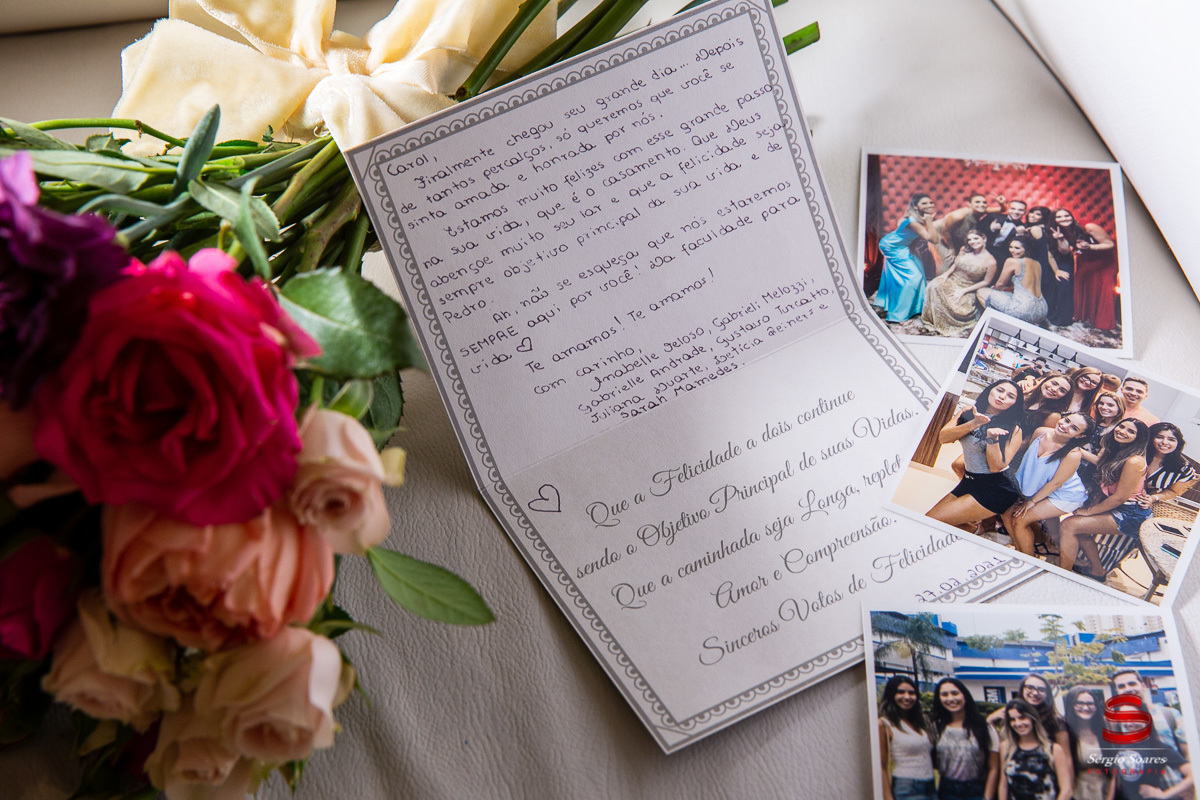 Carol,
Finalmente chegou seu grande dia... Depois
de tantos percalços, só queremos que você se
sinta amada e honrada por nós.
Estamos muito felizes com esse grande passo
na sua vida, que é o casamento. Que Deus
abençoe muito seu lar e que a felicidade seja
sempre objetivo principal da sua vida e de
Pedro.
Ah, não se esqueça que nós estaremos
SEMPRE aqui por você! Da faculdade para
vida. ♡
Te amamos! Te amamos!
com carinho,
Anabelle Veloso, Gabrieli Melozzi,
Gabrielle Andrade, Gustavo Turcatto
Juliana Duarte, Letícia Reiners e
Sarah Mamedes.
♡ Que a Felicidade a dois continue
sendo o Objetivo Principal de suas Vidas.
Que a caminhada seja Longa, replet
Amor e Compreensão.
Sinceros Votos de Felicidad
27.02.2021
S
Sérgio Soares
FOTOGRAFIA